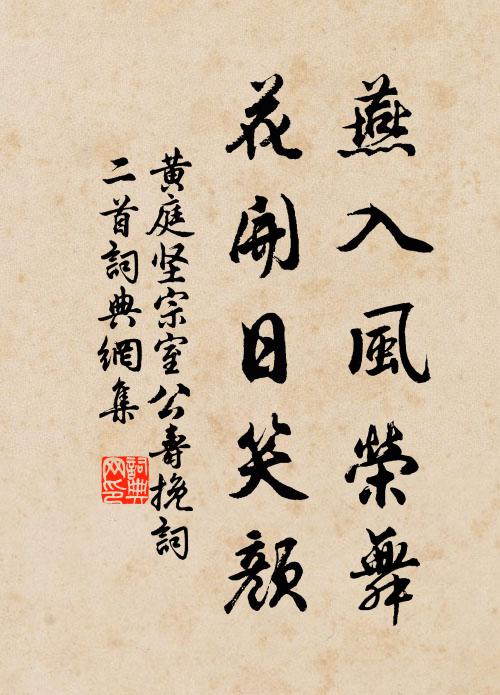 燕入風榮舞
花開日笑顏
黄庭坚宗室公壽挽詞
二首詞典網集
詞典網印